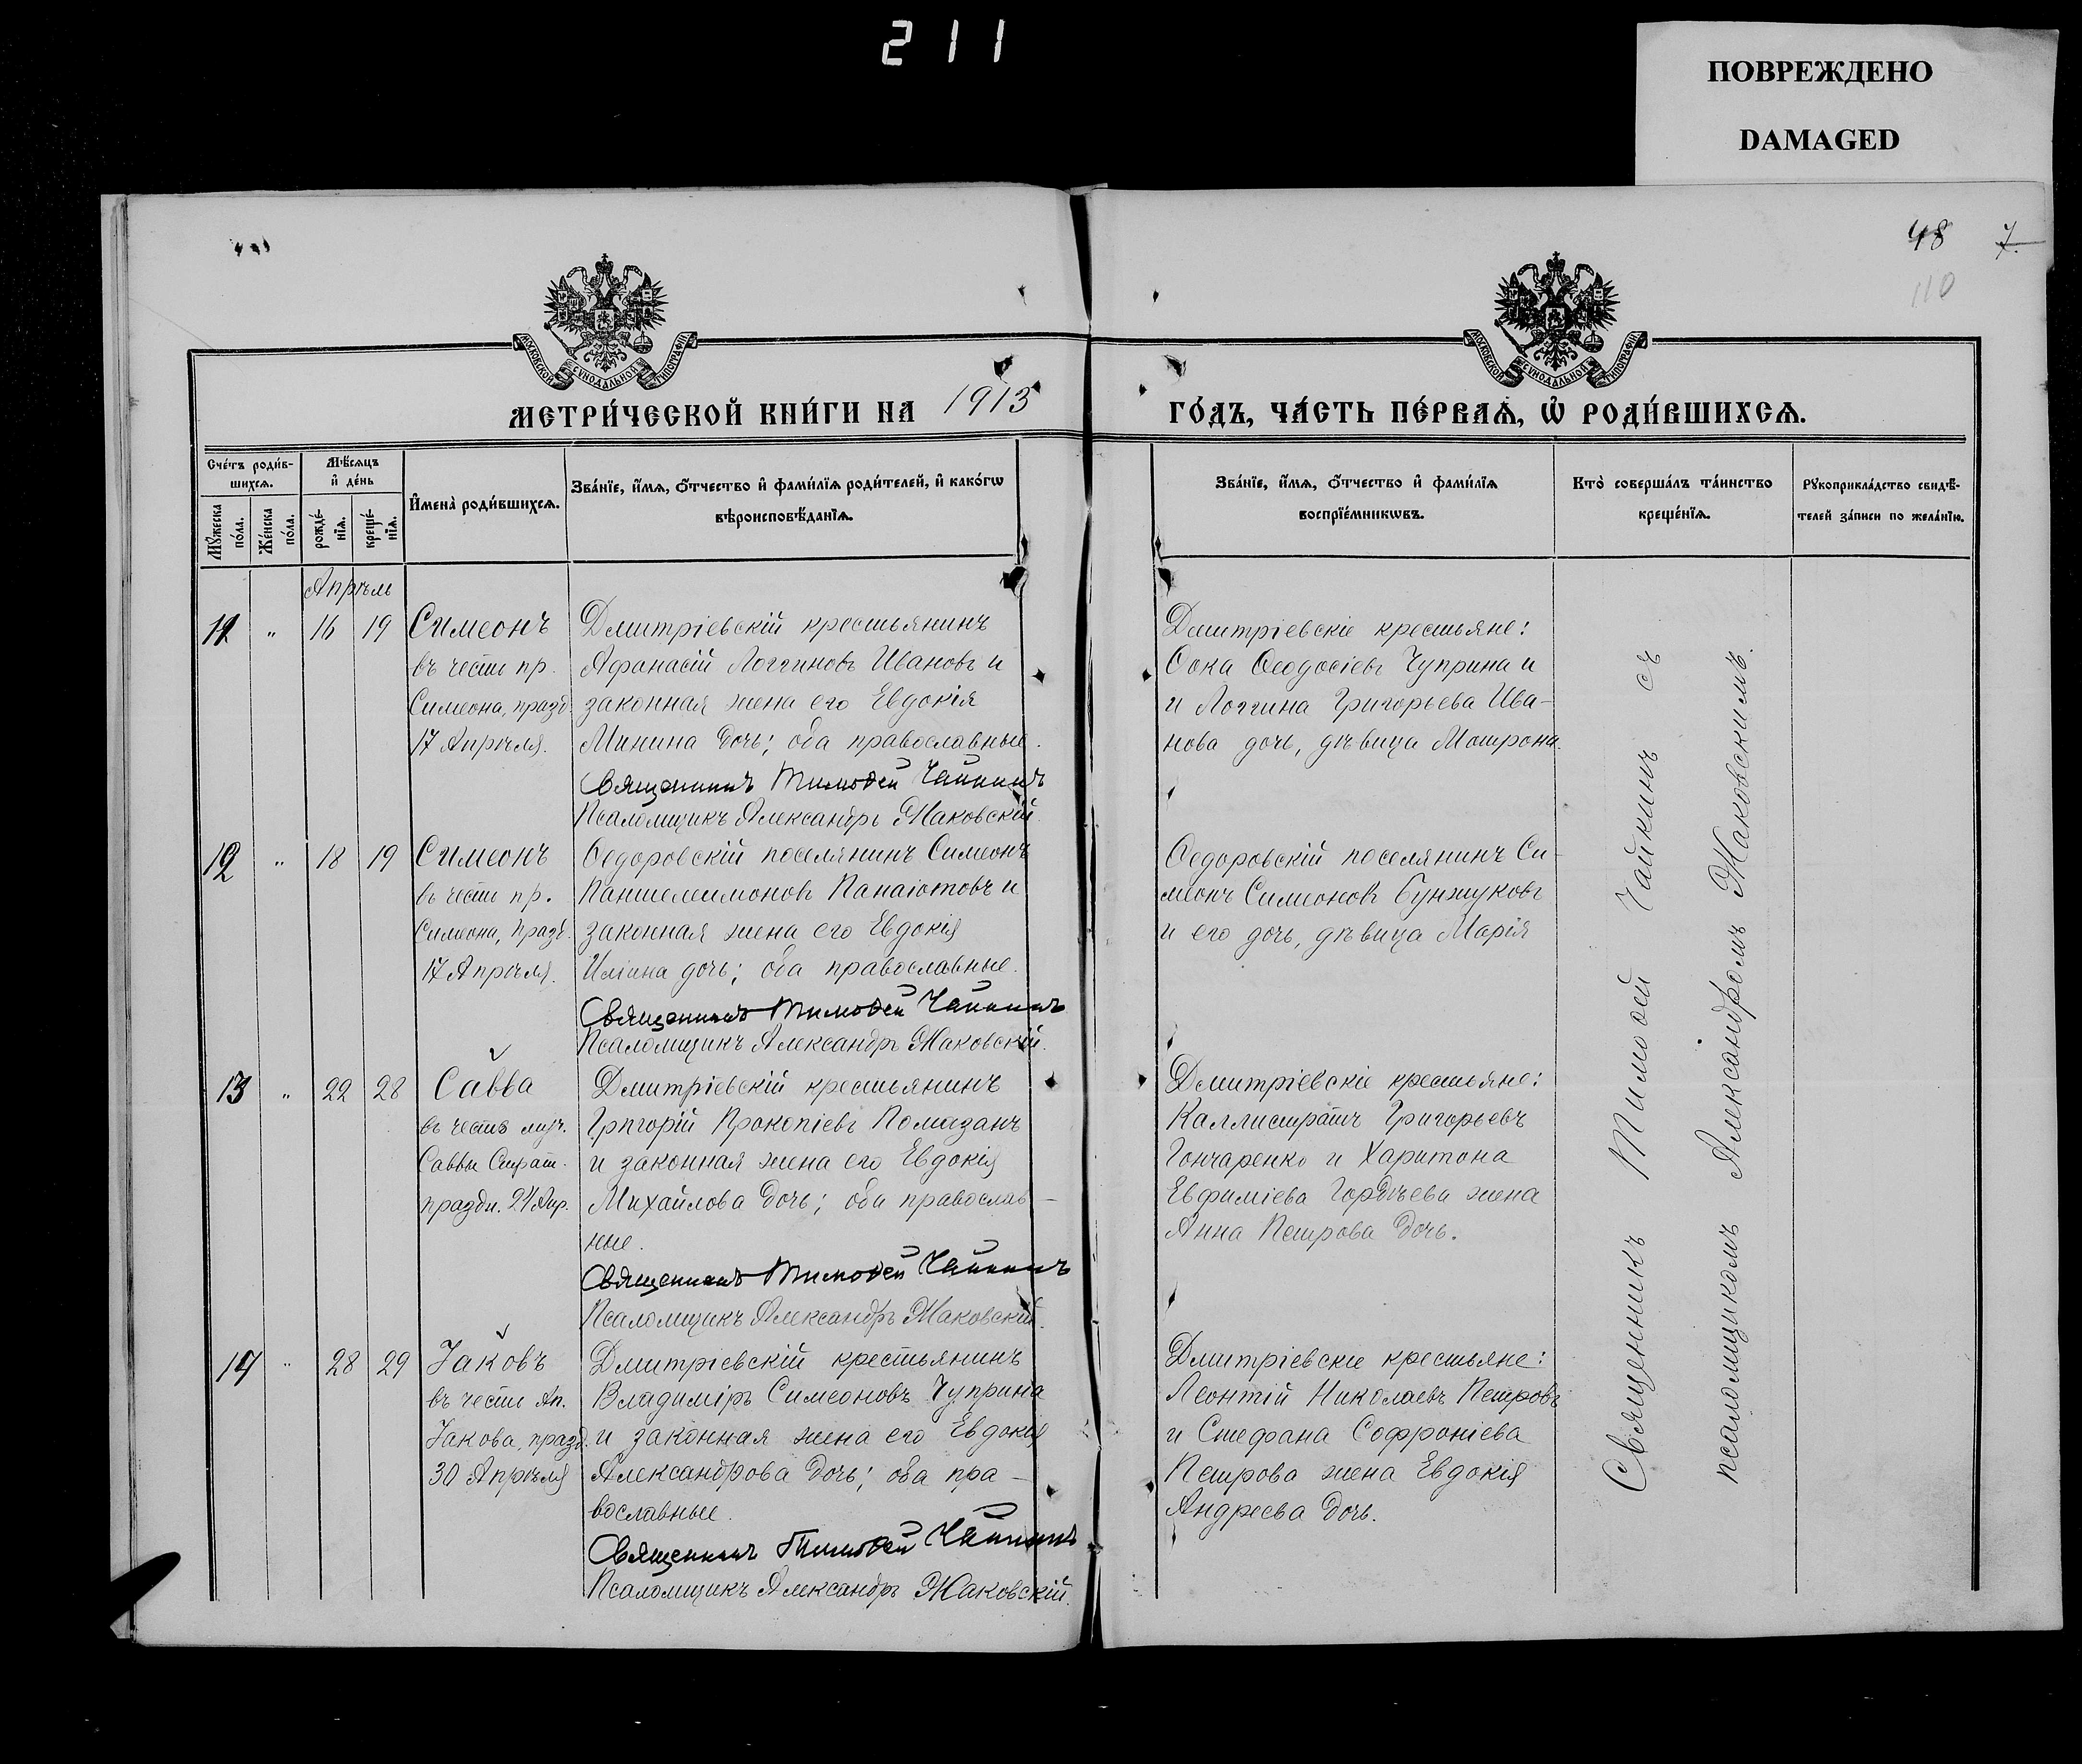 211
ПОВРЕЖДЕНО
DAMAGED
48 7.
110
МОСКОВСКОЙ СУНОДАЛЬНОЙ ТИПОГРАФІИ
МОСКОВСКОЙ СУНОДАЛЬНОЙ ТИПОГРАФІИ
МЕТРИ́ЧЕСКОЙ КНИ́ГИ НА 1913
ГО́ДЪ, ЧА́СТЬ ПЕ́РВАѦ, Ѡ҆ РОДИ́ВШИХСѦ.
Сче́тъ роди́в-
шихсѧ.
Мꙋ́жеска
по́ла.
Же́нска
по́ла.
Мѣ́сѧцъ
и҆ де́нь
рожде́-
нїѧ.
креще́-
нїѧ.
И҆мена̀ роди́вшихсѧ.
Зва́нїе, и҆́мѧ, ѻ҆́тчество и҆ фами́лїѧ роди́телей, и҆ како́гѡ
вѣроисповѣ́данїѧ.
Зва́нїе, и҆́мѧ, ѻ҆́тчество и҆ фами́лїѧ
воспрїе́мникѡвъ.
Кто̀ соверша́лъ та́инство
креще́нїѧ.
Рꙋкоприкла́дство свидѣ́-
телей за́писи по жела́нїю.
Апрѣль
11 " 16 19
Симеонъ
въ честь пр.
Симеона, празд.
17 Апрѣля.
Дмитріевскій крестьянинъ
Афанасій Логгиновъ Ивановъ и
законная жена его Евдокія
Минина дочь; оба православные.
Священникъ Тимоѳей Чайкинъ
Псаломщикъ Александръ Жаковскій.
Дмитріевскіе крестьяне:
Ѳока Ѳеодосіевъ Чуприна и
и Логгина Григорьева Ива-
нова дочь, дѣвица Матрона.
12 " 18 19
Симеонъ
въ честь пр.
Симеона, празд.
17 Апрѣля.
Ѳедоровскій поселянинъ Симеонъ
Пантелеимоновъ Панаіотовъ и
законная жена его Евдокія
Иліина дочь; оба православные.
Священникъ Тимоѳей Чайкинъ
Псаломщикъ Александръ Жаковскій.
Ѳедоровскій поселянинъ Си-
меонъ Симеоновъ Бунжуковъ
и его дочь, дѣвица Марія
13 " 22 28
Савва
въ честь муч.
Саввы Страт.
праздн. 24 Апр.
Дмитріевскій крестьянинъ
Григорій Прокопіевъ Помазанъ
и законная жена его Евдокія
Михайлова дочь; оба православ-
ные.
Священникъ Тимоѳей Чайкинъ
Псаломщикъ Александръ Жаковскій.
Дмитріевскіе крестьяне:
Каллистратъ Григорьевъ
Гончаренко и Харитона
Евфиміева Гордѣева жена
Анна Петрова дочь.
14 " 28 29
Іаковъ
въ честь Ап.
Іакова, празд.
30 Апрѣля
Дмитріевскій крестьянинъ
Владиміръ Симеоновъ Чуприна
и законная жена его Евдокія
Александрова дочь; оба пра-
вославные.
Священникъ Тимоѳей Чайкинъ
Псаломщикъ Александръ Жаковскій.
Дмитріевскіе крестьяне:
Леонтій Николаевъ Петровъ
и Стефана Софроніева
Петрова жена Евдокія
Андреева дочь.
Священникъ Тимоѳей Чайкинъ съ
псаломщикомъ Александромъ Жаковскимъ.